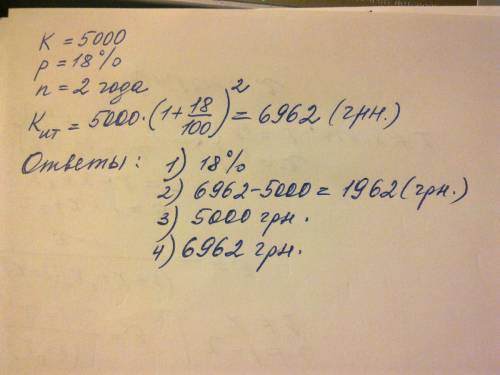 K = 5000
p = 18%
n = 2 года
Kит = 5000·(1+18/100)² = 6962 (грн.)
Ответы: 1) 18%
2) 6962-5000 = 1962(грн.)
3) 5000 грн.
4) 6962 грн.